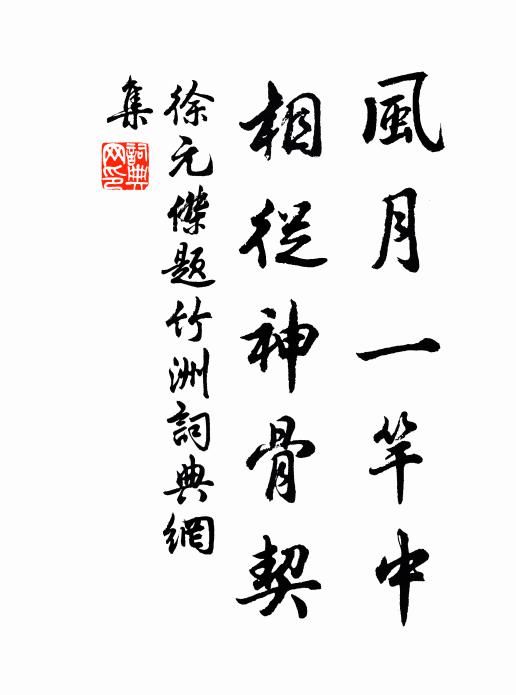 風月一竿中
相從神骨契
徐元傑題竹洲詞典網
集
詞典
网印